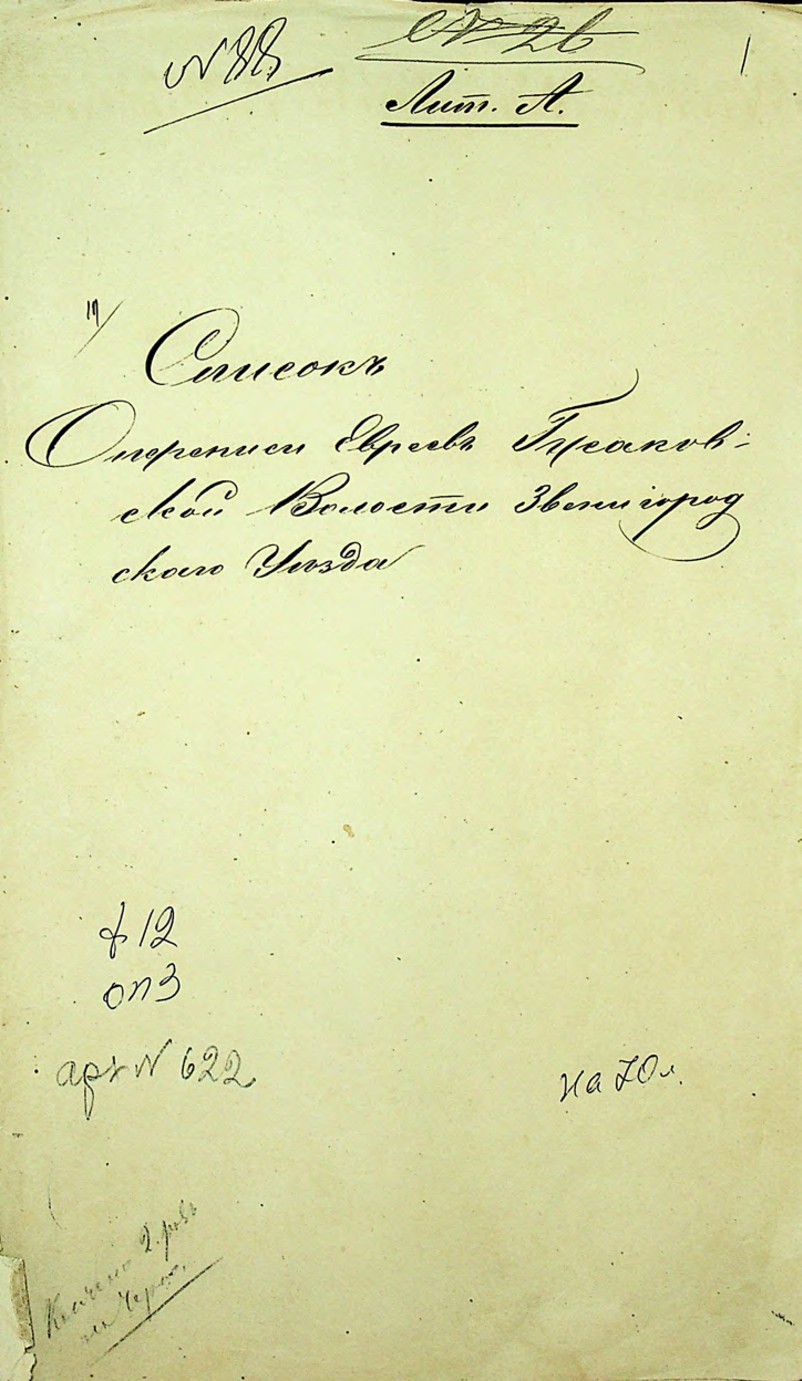 № 88
№ 26
1
Лит. А.
Списокъ
Опереписи Евреевъ Гусаков-
ской Волости Звенигород
скаго Уѣзда
ф 12
оп 3
арх № 622
на 70 л.
2